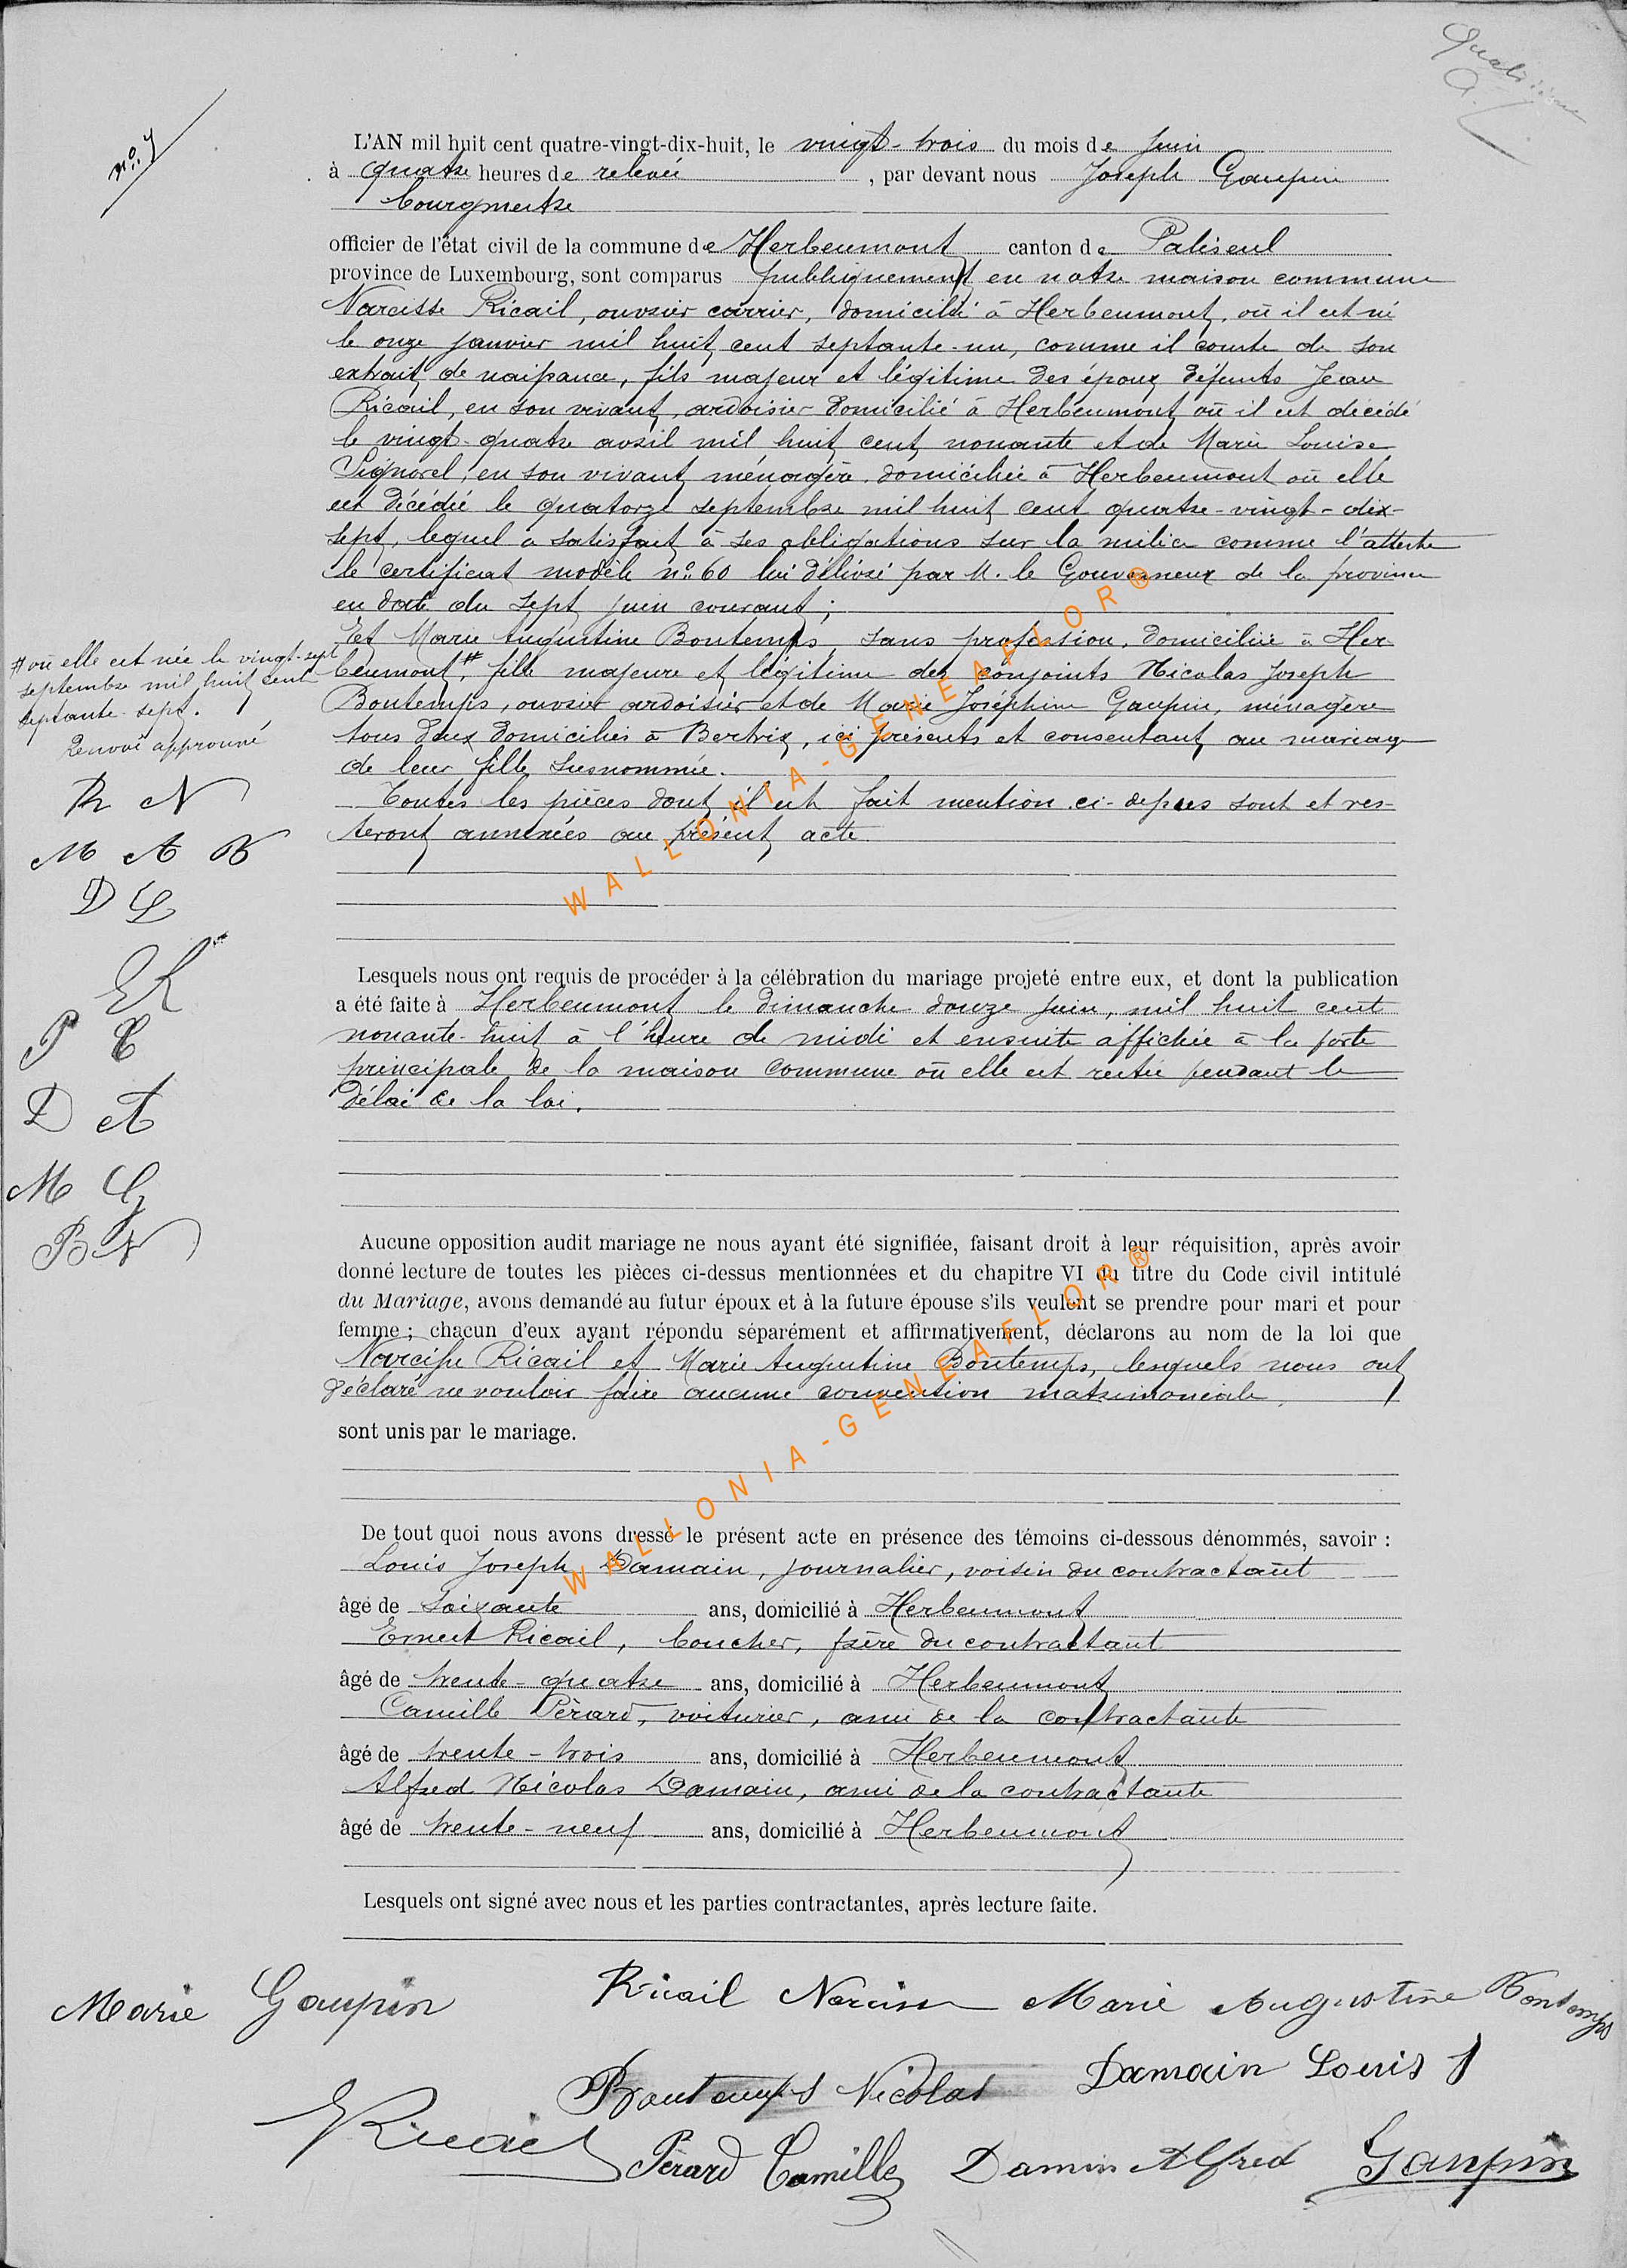 N° 7
L'AN mil huit cent quatre-vingt-dix-huit, le vingt-trois du mois de Juin
à quatre heures de relevée, par devant nous Joseph Gaupin
bourgmestre
officier de l'état civil de la commune de Herbeumont canton de Paliseul
province de Luxembourg, sont comparus publiquement en notre maison commune
Narcisse Ricail, ouvrier carrier, domicilié à Herbeumont, où il est né
le onze janvier mil huit cent septante-un, comme il conste de son
extrait de naissance, fils majeur et légitime des époux défunts Jean
Ricail, en son vivant, ardoisier domicilié à Herbeumont où il est décédé
le vingt-quatre avril mil huit cent nonante et de Marie Louise
Pignorel, en son vivant ménagère domiciliée à Herbeumont où elle
est décédée le quatorze septembre mil huit cent quatre-vingt-dix-
sept, lequel a satisfait à ses obligations sur la milice comme l'atteste
le certificat modèle n° 60 lui délivré par M. le Gouverneur de la province
en date du sept juin courant ;
Et Marie Augustine Bontemps, sans profession, domiciliée à Her-
beumont, # fille majeure et légitime des conjoints Nicolas Joseph
Bontemps, ouvrier ardoisier et de Marie Joséphine Gaupin, ménagère
tous deux domiciliés à Bertrix, ici présents et consentant au mariage
de leur fille susnommée.
Toutes les pièces dont il est fait mention ci-dessus sont et res-
teront annexées au présent acte.
# où elle est née le vingt-sept
septembre mil huit cent
septante-sept.
Renvoi approuvé
R N
M A B
D L
E R
P C
D A
M G
B N
Lesquels nous ont requis de procéder à la célébration du mariage projeté entre eux, et dont la publication
a été faite à Herbeumont le dimanche douze juin, mil huit cent
nonante-huit à l'heure de midi et ensuite affichée à la porte
principale de la maison commune où elle est restée pendant le
délai de la loi.
Aucune opposition audit mariage ne nous ayant été signifiée, faisant droit à leur réquisition, après avoir
donné lecture de toutes les pièces ci-dessus mentionnées et du chapitre VI du titre du Code civil intitulé
du Mariage, avons demandé au futur époux et à la future épouse s'ils veulent se prendre pour mari et pour
femme ; chacun d'eux ayant répondu séparément et affirmativement, déclarons au nom de la loi que
Narcisse Ricail et Marie Augustine Bontemps, lesquels nous ont
déclaré ne vouloir faire aucune convention matrimoniale,
sont unis par le mariage.
De tout quoi nous avons dressé le présent acte en présence des témoins ci-dessous dénommés, savoir :
Louis Joseph Damain, journalier, voisin du contractant
âgé de soixante ans, domicilié à Herbeumont
Ernest Ricail, boucher, frère du contractant
âgé de trente-quatre ans, domicilié à Herbeumont
Camille Pérard, voiturier, ami de la contractante
âgé de trente-trois ans, domicilié à Herbeumont
Alfred Nicolas Damain, ami de la contractante
âgé de trente-neuf ans, domicilié à Herbeumont
Lesquels ont signé avec nous et les parties contractantes, après lecture faite.
Marie Gaupin Ricail Narcisse Marie Augustine Bontemps
Bontemps Nicolas Damain Louis J
E Ricail Pérard Camille Damin Alfred Gaupin
WALLONIA-GENEAFLOR®
WALLONIA-GENEAFLOR®